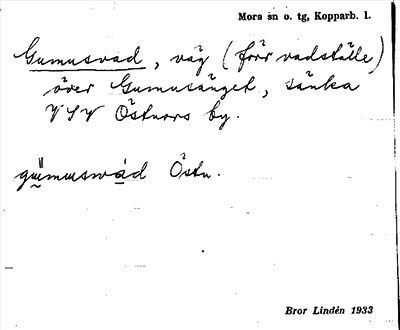 Mora sn o. tg, Kopparb. l.
Gumusvad, väg (förr vadställe)
över Gumusänget, sänka
VSV Östnors by.
gümuswád Östn.
Bror Lindén 1933